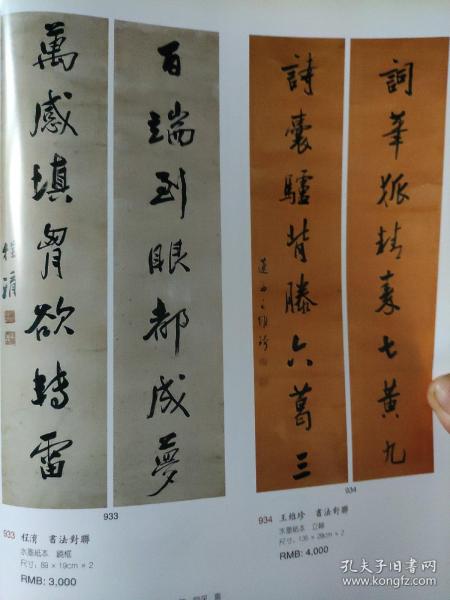 百端到眼都成夢
萬感填胷欲轉雷
程淯
詞華秦七黃九
詩囊驢背滕六葛三
蓮西王維珍
933
933 程淯 書法對聯
水墨紙本 鏡框
尺寸：89×19cm×2
RMB: 3,000
934
934 王維珍 書法對聯
水墨紙本 立軸
尺寸：135×28cm×2
RMB: 4,000
孔夫子旧书网